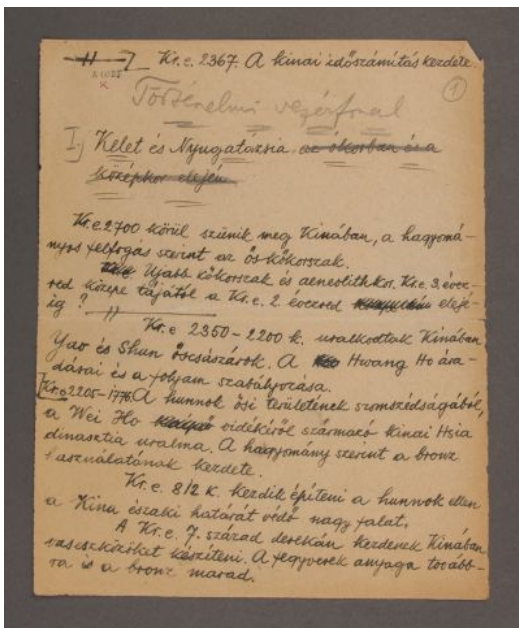 Kr.e. 2367. A kinai időszámítás kezdete
1
Történelmi vezérfonal
I.) Kelet és Nyugatázsia az ókorban és a
középkor elején
Kr.e. 2700 körül szünik meg Kinában, a hagyomá-
nyos felfogás szerint az ős-kőkorszak.
Ujabb kőkorszak és aeneolithkor. Kr.e. 3. évez-
red közepe tájától a Kr.e. 2 évezred elejé-
ig?
Kr.e 2350-2200 k. uralkodtak Kinában
Yao és Shun őscsászárok. A Hwang Ho ára-
dásai és a folyam szabályozása.
Kr.e. 2205-1776 A hunnok ősi területének szomszédságából,
a Wei Ho vidékéről származó kinai Hsia
dinasztia uralma. A hagyomány szerint a bronz
használatának kezdete.
Kr.e. 8/2 k. kezdik építeni a hunnok ellen
a Kina északi határát védő nagy falat.
A Kr.e. 7. század derekán kezdenek Kinában
vaseszközöket készíteni. A fegyverek anyaga tovább-
ra is a bronz marad.